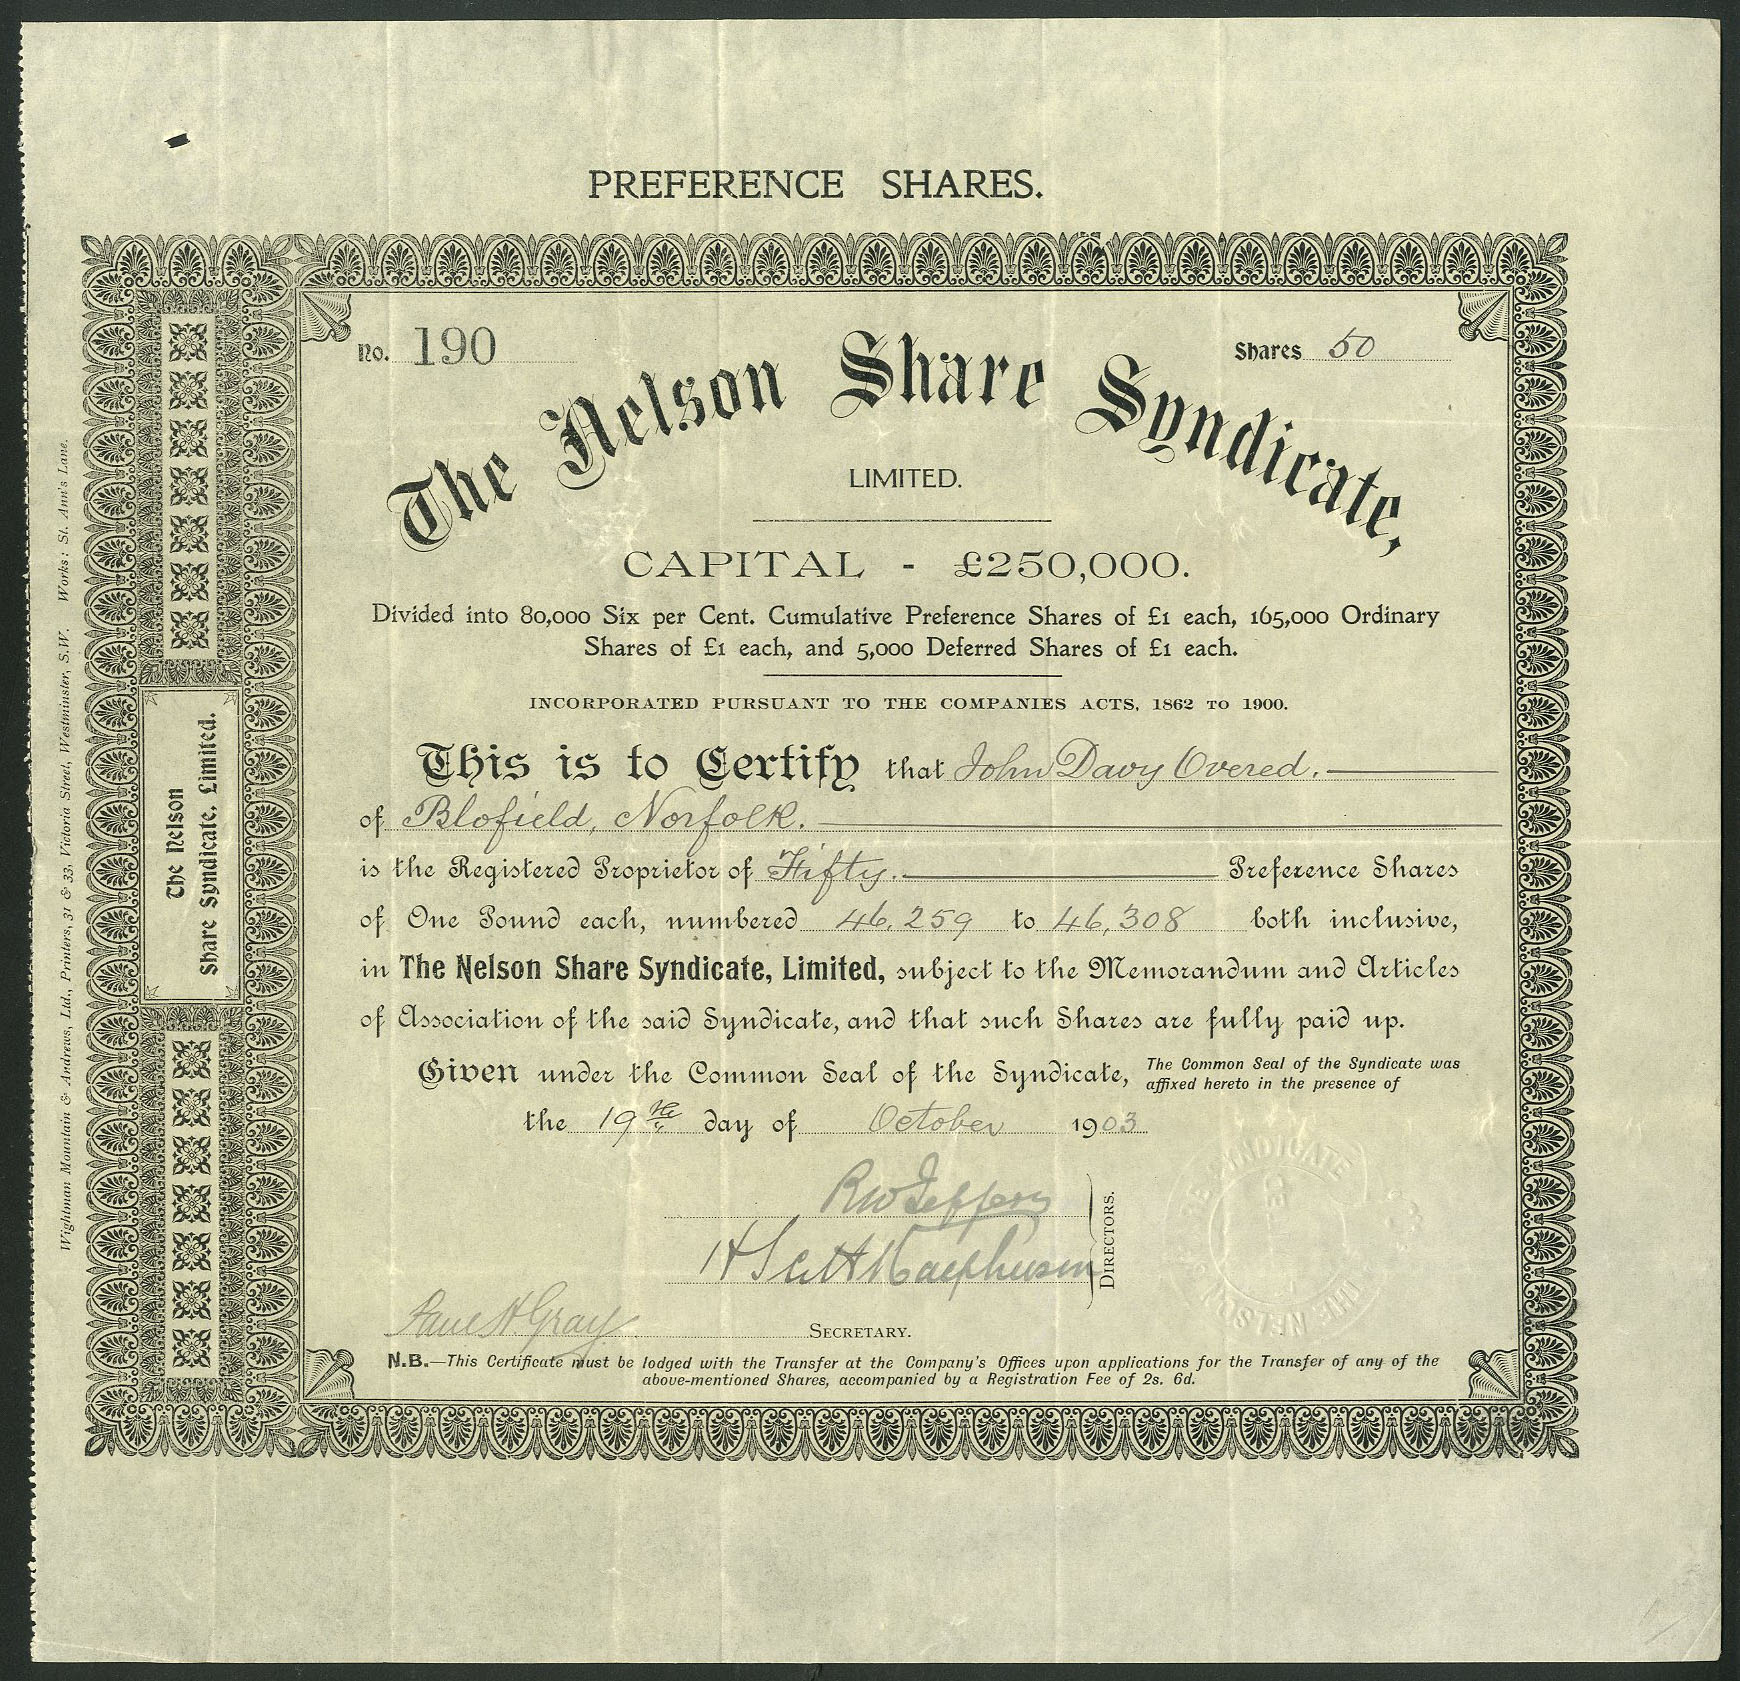 PREFERENCE SHARES.
No. 190
Shares 50
The Nelson Share Syndicate,
LIMITED.
CAPITAL - £250,000.
Divided into 80,000 Six per Cent. Cumulative Preference Shares of £1 each, 165,000 Ordinary
Shares of £1 each, and 5,000 Deferred Shares of £1 each.
INCORPORATED PURSUANT TO THE COMPANIES ACTS, 1862 TO 1900.
This is to Certify that John Davy Overed.
of Blofield, Norfolk.
is the Registered Proprietor of Fifty. Preference Shares
of One Pound each, numbered 46,259 to 46,308 both inclusive,
in The Nelson Share Syndicate, Limited, subject to the Memorandum and Articles
of Association of the said Syndicate, and that such Shares are fully paid up.
Given under the Common Seal of the Syndicate,
The Common Seal of the Syndicate was
affixed hereto in the presence of
the 19th day of October 1903
RW Jeffery
DIRECTORS.
H Scott
H. Gray
SECRETARY.
N.B.—This Certificate must be lodged with the Transfer at the Company's Offices upon applications for the Transfer of any of the
above-mentioned Shares, accompanied by a Registration Fee of 2s. 6d.
The Nelson
Share Syndicate, Limited.
Wightman Mountain & Andrews, Ltd., Printers, 31 & 33, Victoria Street, Westminster, S.W. Works: St. Ann's Lane.
THE NELSON SYNDICATE